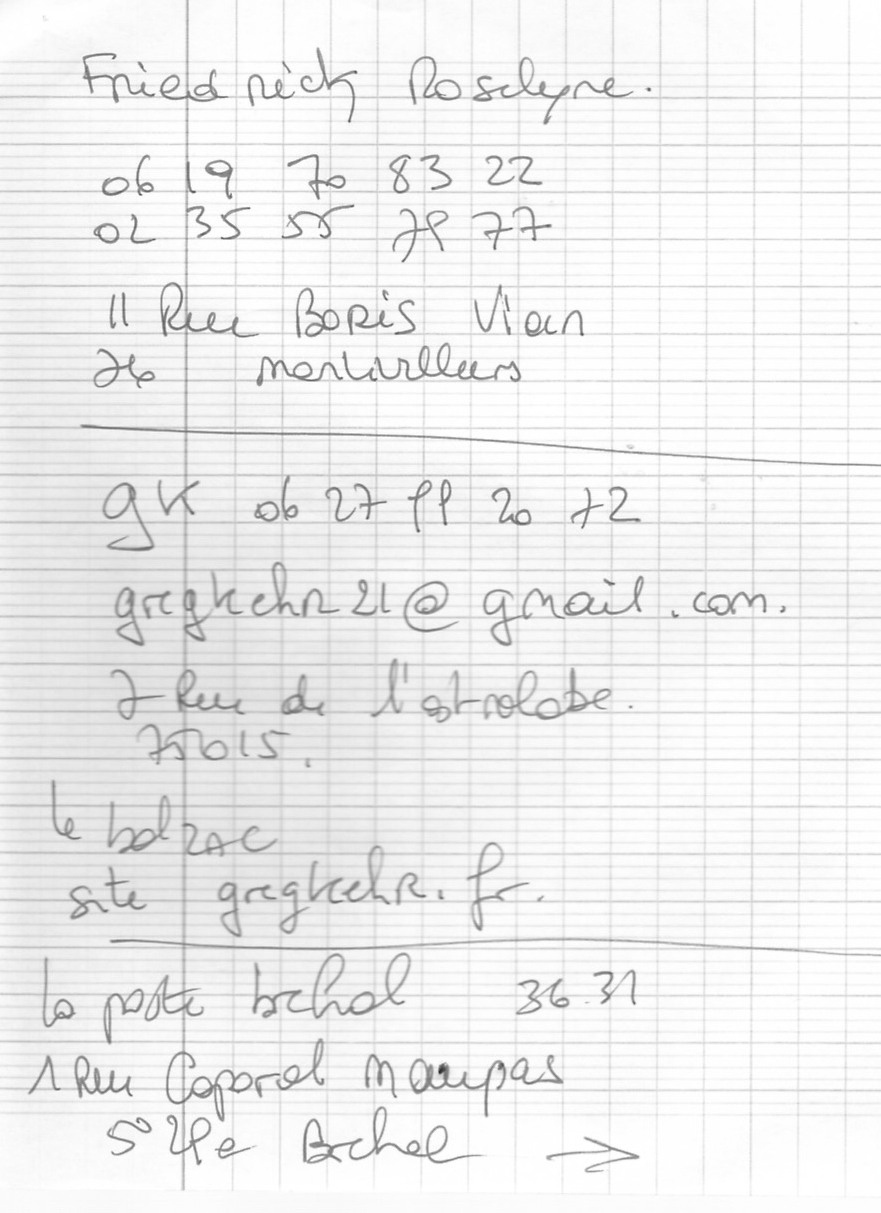 Friedrick Roselyne.
06 19 70 83 22
02 35 55 79 77
11 Rue Boris Vian
76 montivilliers
gK 06 27 99 20 72
gregkehr21@gmail.com.
7 Rue de l'astrolabe.
75015.
le balzac
site gregkehr.fr.
la poste 36.31
1 Rue Caporal Maupas